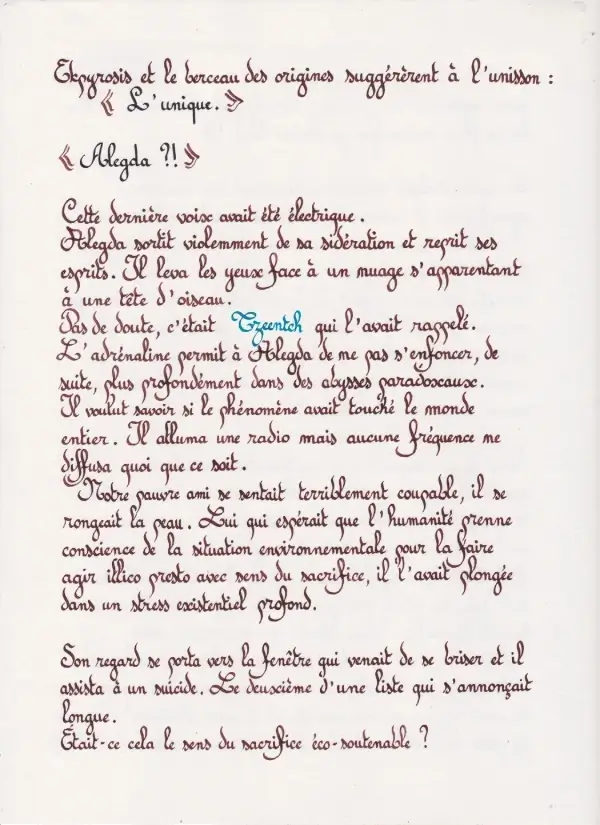 Ekpyrosis et le berceau des origines suggérèrent à l'unisson :
« L'unique. »
« Alegda ?! »
Cette dernière voix avait été électrique.
Alegda sortit violemment de sa sidération et reprit ses
esprits. Il leva les yeux face à un nuage s'apparentant
à une tête d'oiseau.
Pas de doute, c'était Tzeentch qui l'avait rappelé.
L'adrénaline permit à Alegda de ne pas s'enfoncer, de
suite, plus profondément dans des abysses paradoxaux.
Il voulut savoir si le phénomène avait touché le monde
entier. Il alluma une radio mais aucune fréquence ne
diffusa quoi que ce soit.
Notre pauvre ami se sentait terriblement coupable, il se
rongeait la peau. Lui qui espérait que l'humanité prenne
conscience de la situation environnementale pour la faire
agir illico presto avec sens du sacrifice, il l'avait plongée
dans un stress existentiel profond.
Son regard se porta vers la fenêtre qui venait de se briser et il
assista à un suicide. Le deuxième d'une liste qui s'annonçait
longue.
Était-ce cela le sens du sacrifice éco-soutenable ?